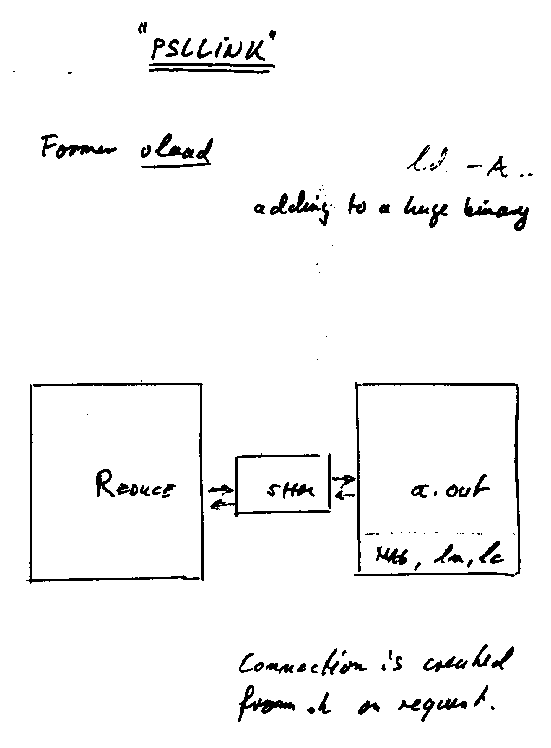 "PSLLINK"
Former oload
ld -A ..
adding to a huge binary
REDUCE
SHM
a.out
lm, lc
Connection is created
from .h on request.